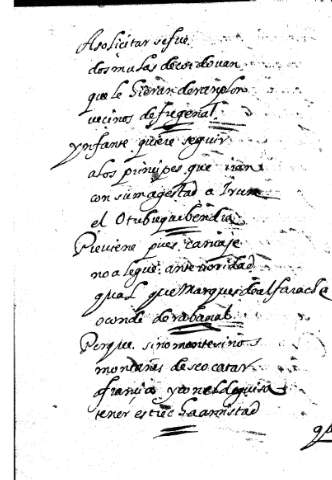 A solicitar se fue
dos mulas de cordouan
que le
vecinos de fregenal.
ynfante quiere seguir
a los principes que iran
con su magestad a Irun
el
Preuiene pues cariaje
no alegue anterioridad
qual que Marques de alfarache
o conde de rabanal.
Porque si no montesinos
montañas deseo catar
a francia y con el de guisa
tener estrecha amistad